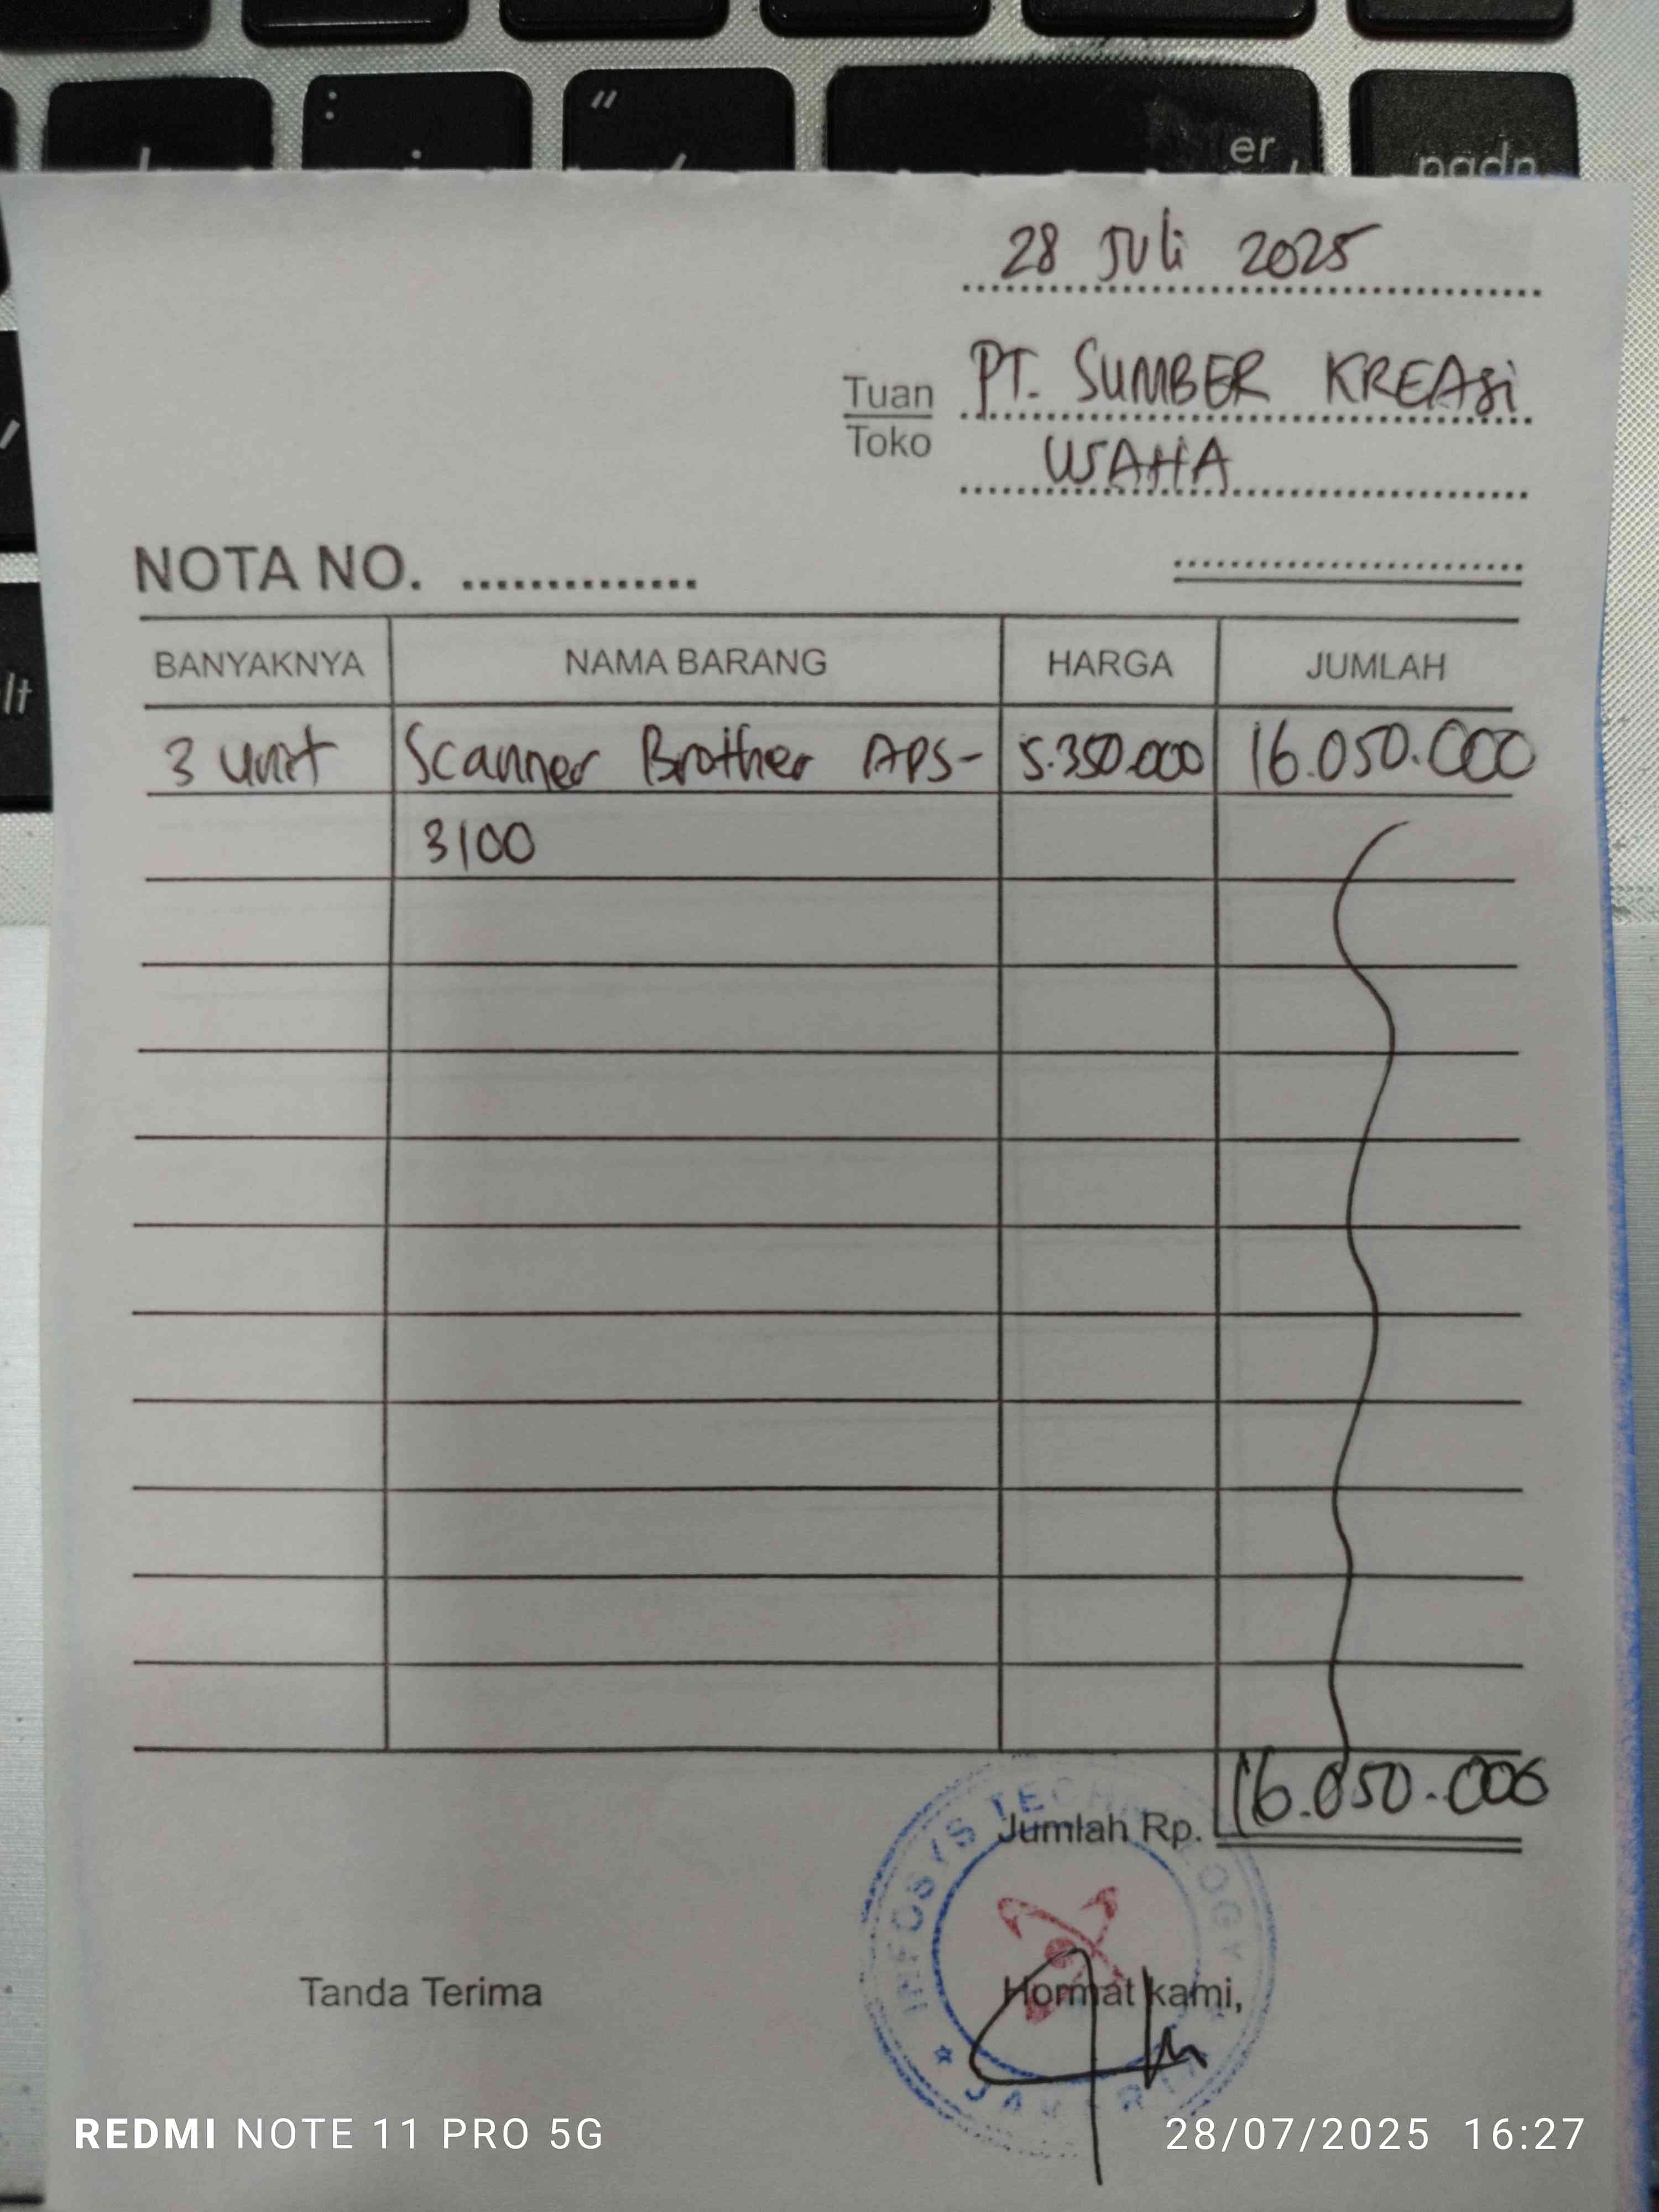 "
:
er
pgdn
lt
28 Juli 2025
Tuan
Toko
PT. SUMBER KREASi
USAHA
NOTA NO. ..............
BANYAKNYA NAMA BARANG HARGA JUMLAH
3 Unit Scanner Brother ADS- 5.350.000 16.050.000
3100
Jumlah Rp. 16.050.000
INFOSYS TECHNOLOGY
JAKARTA
Tanda Terima Hormat kami,
REDMI NOTE 11 PRO 5G 28/07/2025 16:27